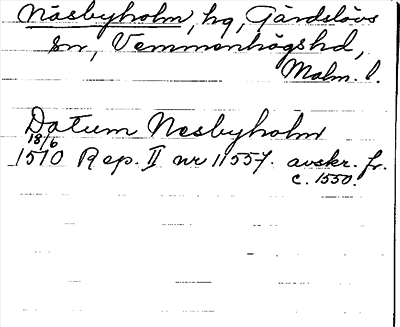 Näsbyholm, hg, Gärdslövs
sn, Vemmenhögshd,
Malm. l.
Datum Nesbyholm
18/6
1510 Rep. II nr 11557. avskr. fr.
c. 1550.